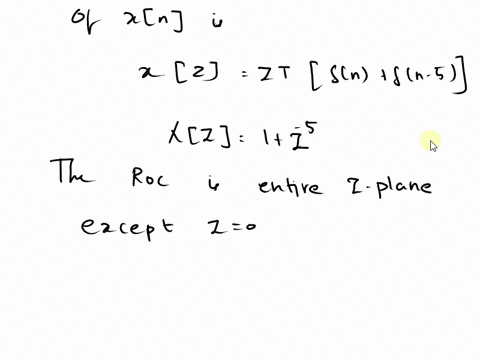 Of x[n] is
x[z] = ZT [δ(n) + δ(n-5)]
X[z] = 1 + z^-5
The Roc is entire z-plane
except z=0